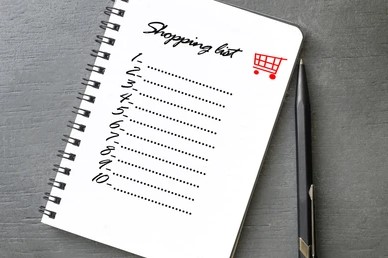 Shopping list
1- ....................
2- ....................
3- ....................
4- ....................
5- ....................
6- ....................
7- ....................
8- ....................
9- ....................
10- ....................